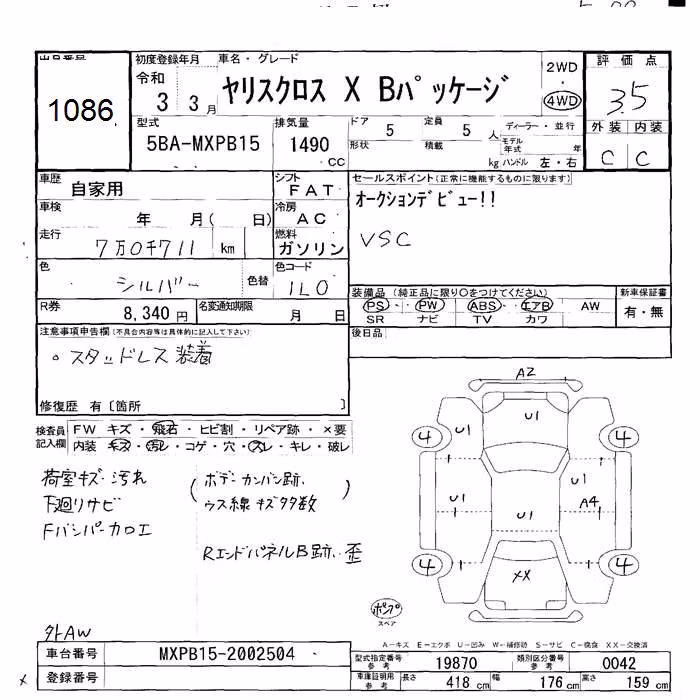 出品番号
1086
初度登録年月
令和
3 3 月
車名・グレード
ヤリスクロス X Bパッケージ
2WD
・
4WD
評価点
3.5
外装 内装
C C
型式
5BA-MXPB15
排気量
1490
CC
ドア
5
定員
5
人
形状
積載
kg
ディーラー・並行
モデル年式 年
ハンドル 左・右
車歴
自家用
シフト
FAT
車検
年 月( 日)
冷房
AC
走行
7万0千711 km
燃料
ガソリン
色
シルバー
色替
色コード
1L0
R券
8,340 円
名変通知期限
月 日
セールスポイント(正常に機能するものに限ります)
オークションデビュー!!
VSC
装備品(純正品に限り○をつけてください)
PS・ PW・ ABS・ エアB AW
SR ナビ TV カワ
新車保証書
有・無
後日品
注意事項申告欄(不具合内容等は具体的に記入して下さい)
。スタッドレス装着
修復歴 有〔箇所 〕
検査員
記入欄
FW キズ・飛石・ヒビ割・リペア跡・×要
内装 キズ・汚レ・コゲ・穴・スレ・キレ・破レ
荷室キズ・汚れ
下廻りサビ
Fバンパー カロエ
(ボデーカンバン跡、
ウス線キズタタ数)
RエンドパネルB跡、歪
外AW
A2
U1
4 U1 4
U1 U1
A4
U1
XX
4 4
ポンプ
スペア
A-キズ E-エクボ U-凹み W-補修跡 S-サビ C-腐食 XX-交換済
車台番号
MXPB15-2002504
登録番号
型式指定番号
参考
19870
類別区分番号
参考
0042
車庫証明用
参考
長さ
418 cm
幅
176 cm
高さ
159 cm